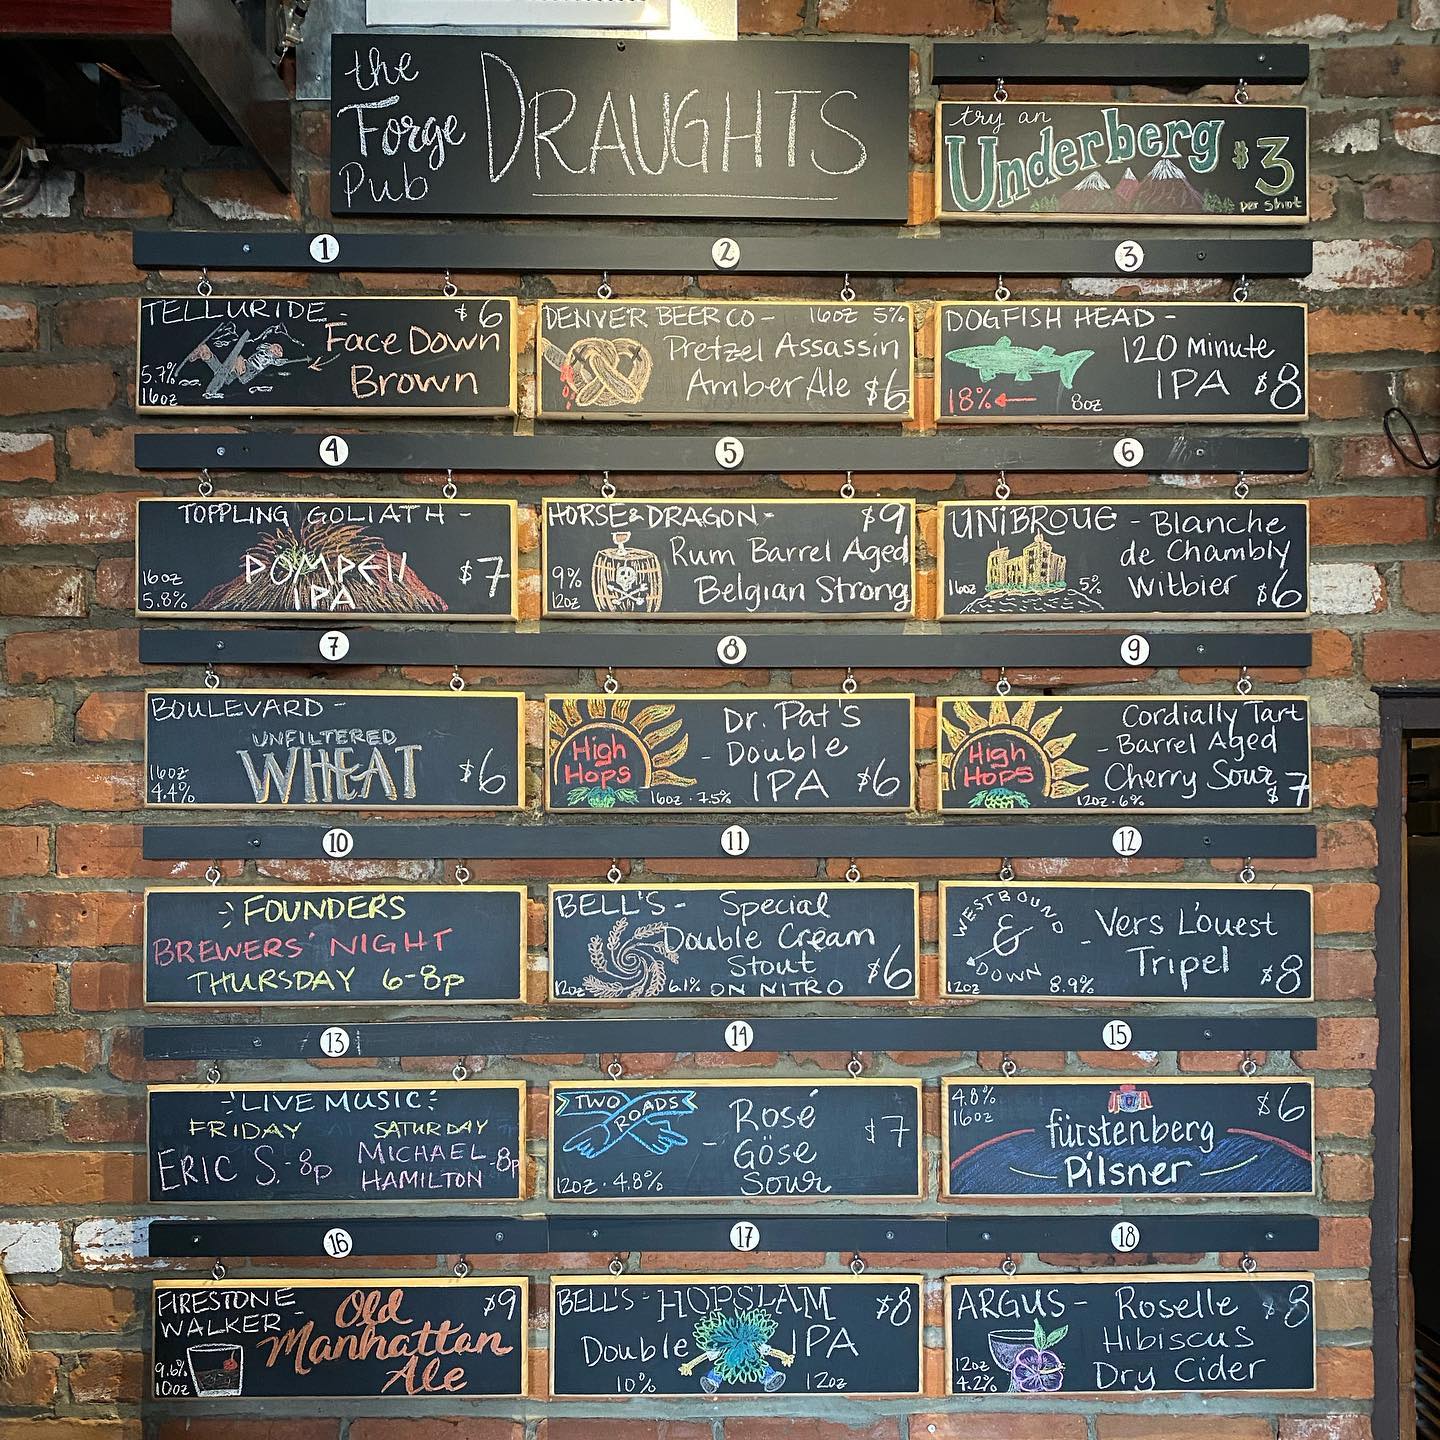 the
Forge
Pub
DRAUGHTS
try an
Underberg
$3
per shot
1
2
3
TELLURIDE - $6
Face Down
Brown
5.7%
16oz
DENVER BEER CO - 16oz 5%
Pretzel Assassin
Amber Ale $6
DOGFISH HEAD -
120 Minute
IPA $8
18% ← 8oz
4
5
6
TOPPLING GOLIATH -
POMPEII
IPA
$7
16oz
5.8%
HORSE & DRAGON - $9
Rum Barrel Aged
Belgian Strong
9%
12oz
UNIBROUE - Blanche
de Chambly
Witbier $6
16oz 5%
7
8
9
BOULEVARD -
UNFILTERED
WHEAT
$6
16oz
4.4%
High
Hops
- Dr. Pat's
Double
IPA $6
16oz · 7.5%
High
Hops
Cordially Tart
- Barrel Aged
Cherry Sour
$7
12oz · 6%
10
11
12
FOUNDERS
BREWERS' NIGHT
THURSDAY 6-8p
BELL'S - Special
Double Cream
Stout
ON NITRO
$6
12oz 6.1%
WESTBOUND
&
DOWN
- Vers L'ouest
Tripel
$8
12oz 8.9%
13
14
15
LIVE MUSIC
FRIDAY
ERIC S. - 8p
SATURDAY
MICHAEL
HAMILTON - 8p
TWO
ROADS
- Rosé
Göse
Sour
$7
12oz · 4.8%
4.8%
16oz
$6
fürstenberg
Pilsner
16
17
18
FIRESTONE
WALKER -
Old
Manhattan
Ale
$9
9.6%
10oz
BELL'S - HOPSLAM $8
Double IPA
10% 12oz
ARGUS - Roselle $8
Hibiscus
Dry Cider
12oz
4.2%